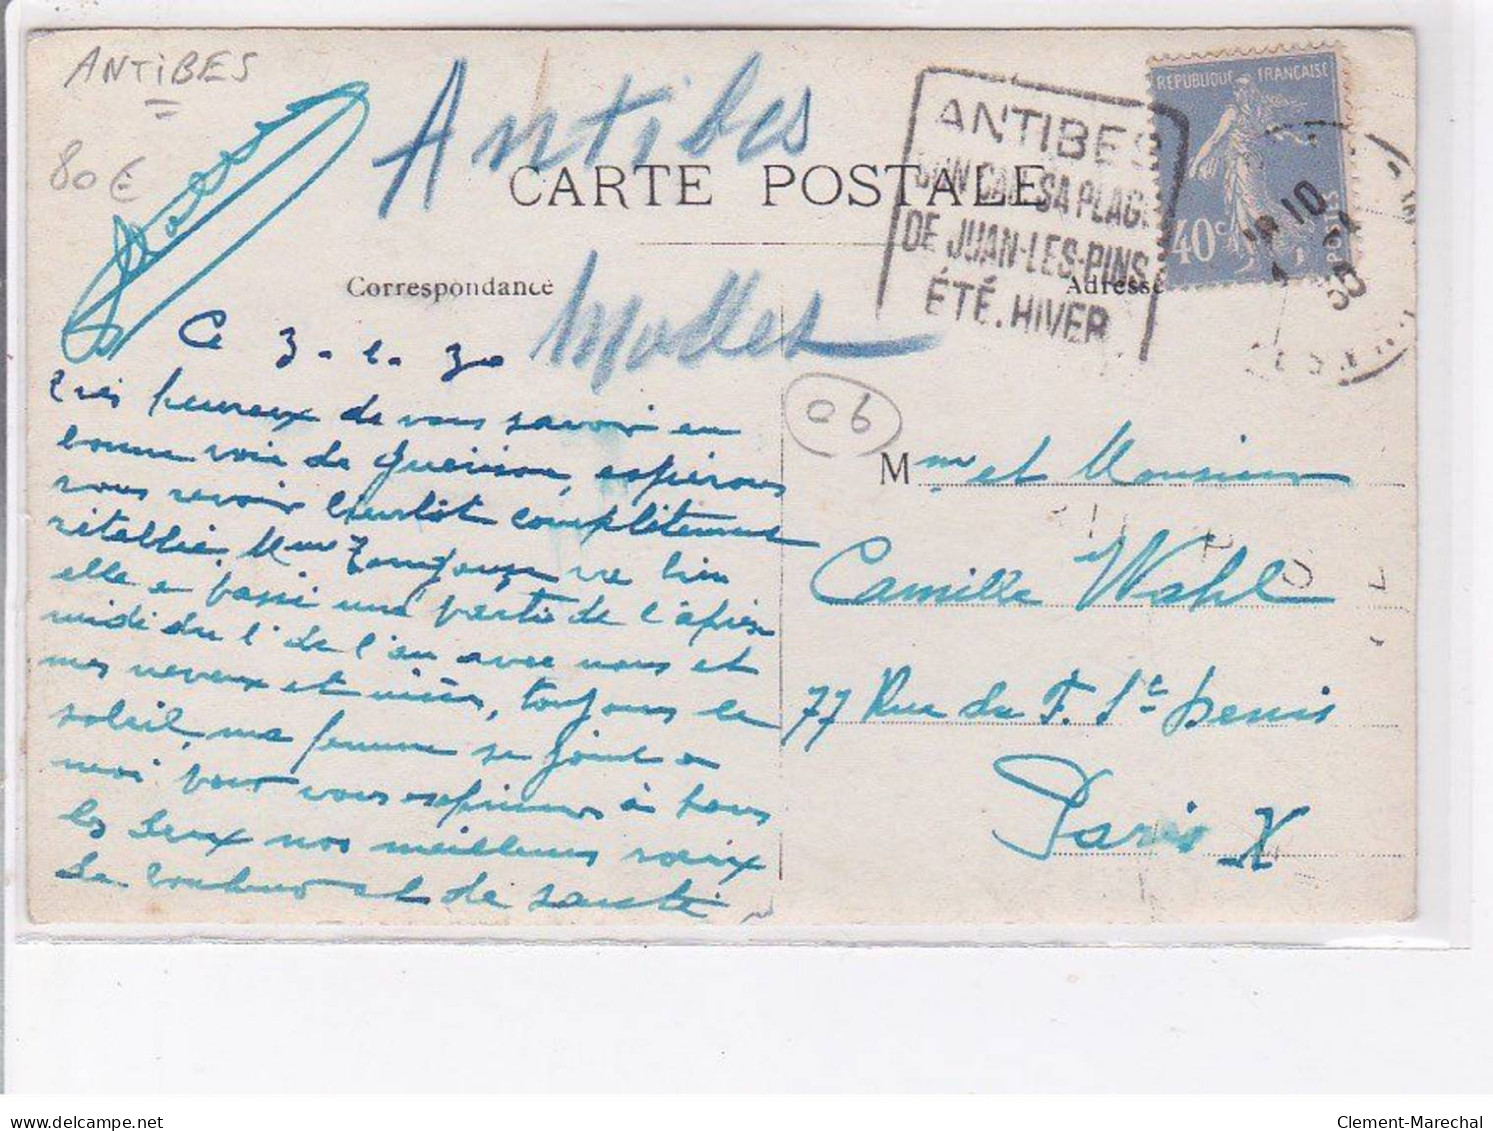 ANTIBES
80€
Antibes
CARTE POSTALE
ANTIBES
SON CAP. SA PLAGE
DE JUAN-LES-PINS
ÉTÉ. HIVER
REPUBLIQUE FRANÇAISE
40c
POSTES
18 10
30
Correspondance
Adresse
06
Ce 3-1-30
Très heureux de vous savoir en
bonne voie de guérison, espérons
vous revoir bientôt complètement
rétablie. Mme va bien
elle a passé une partie de l'après
midi du 1 de l'an avec nous et
mes neveux et nièces, toujours le
soleil, ma femme se joint a
moi pour vous exprimer à tous
les deux nos meilleurs vœux
de bonheur et de santé
Mme et Monsieur
Camille Wahl
77 Rue du F. St Denis
Paris X
Clement-Marechal